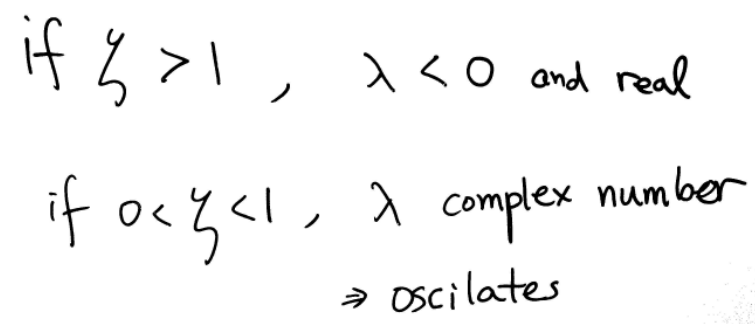 if ζ > 1 , λ < 0 and real
if 0 < ζ < 1 , λ complex number
⇒ oscilates